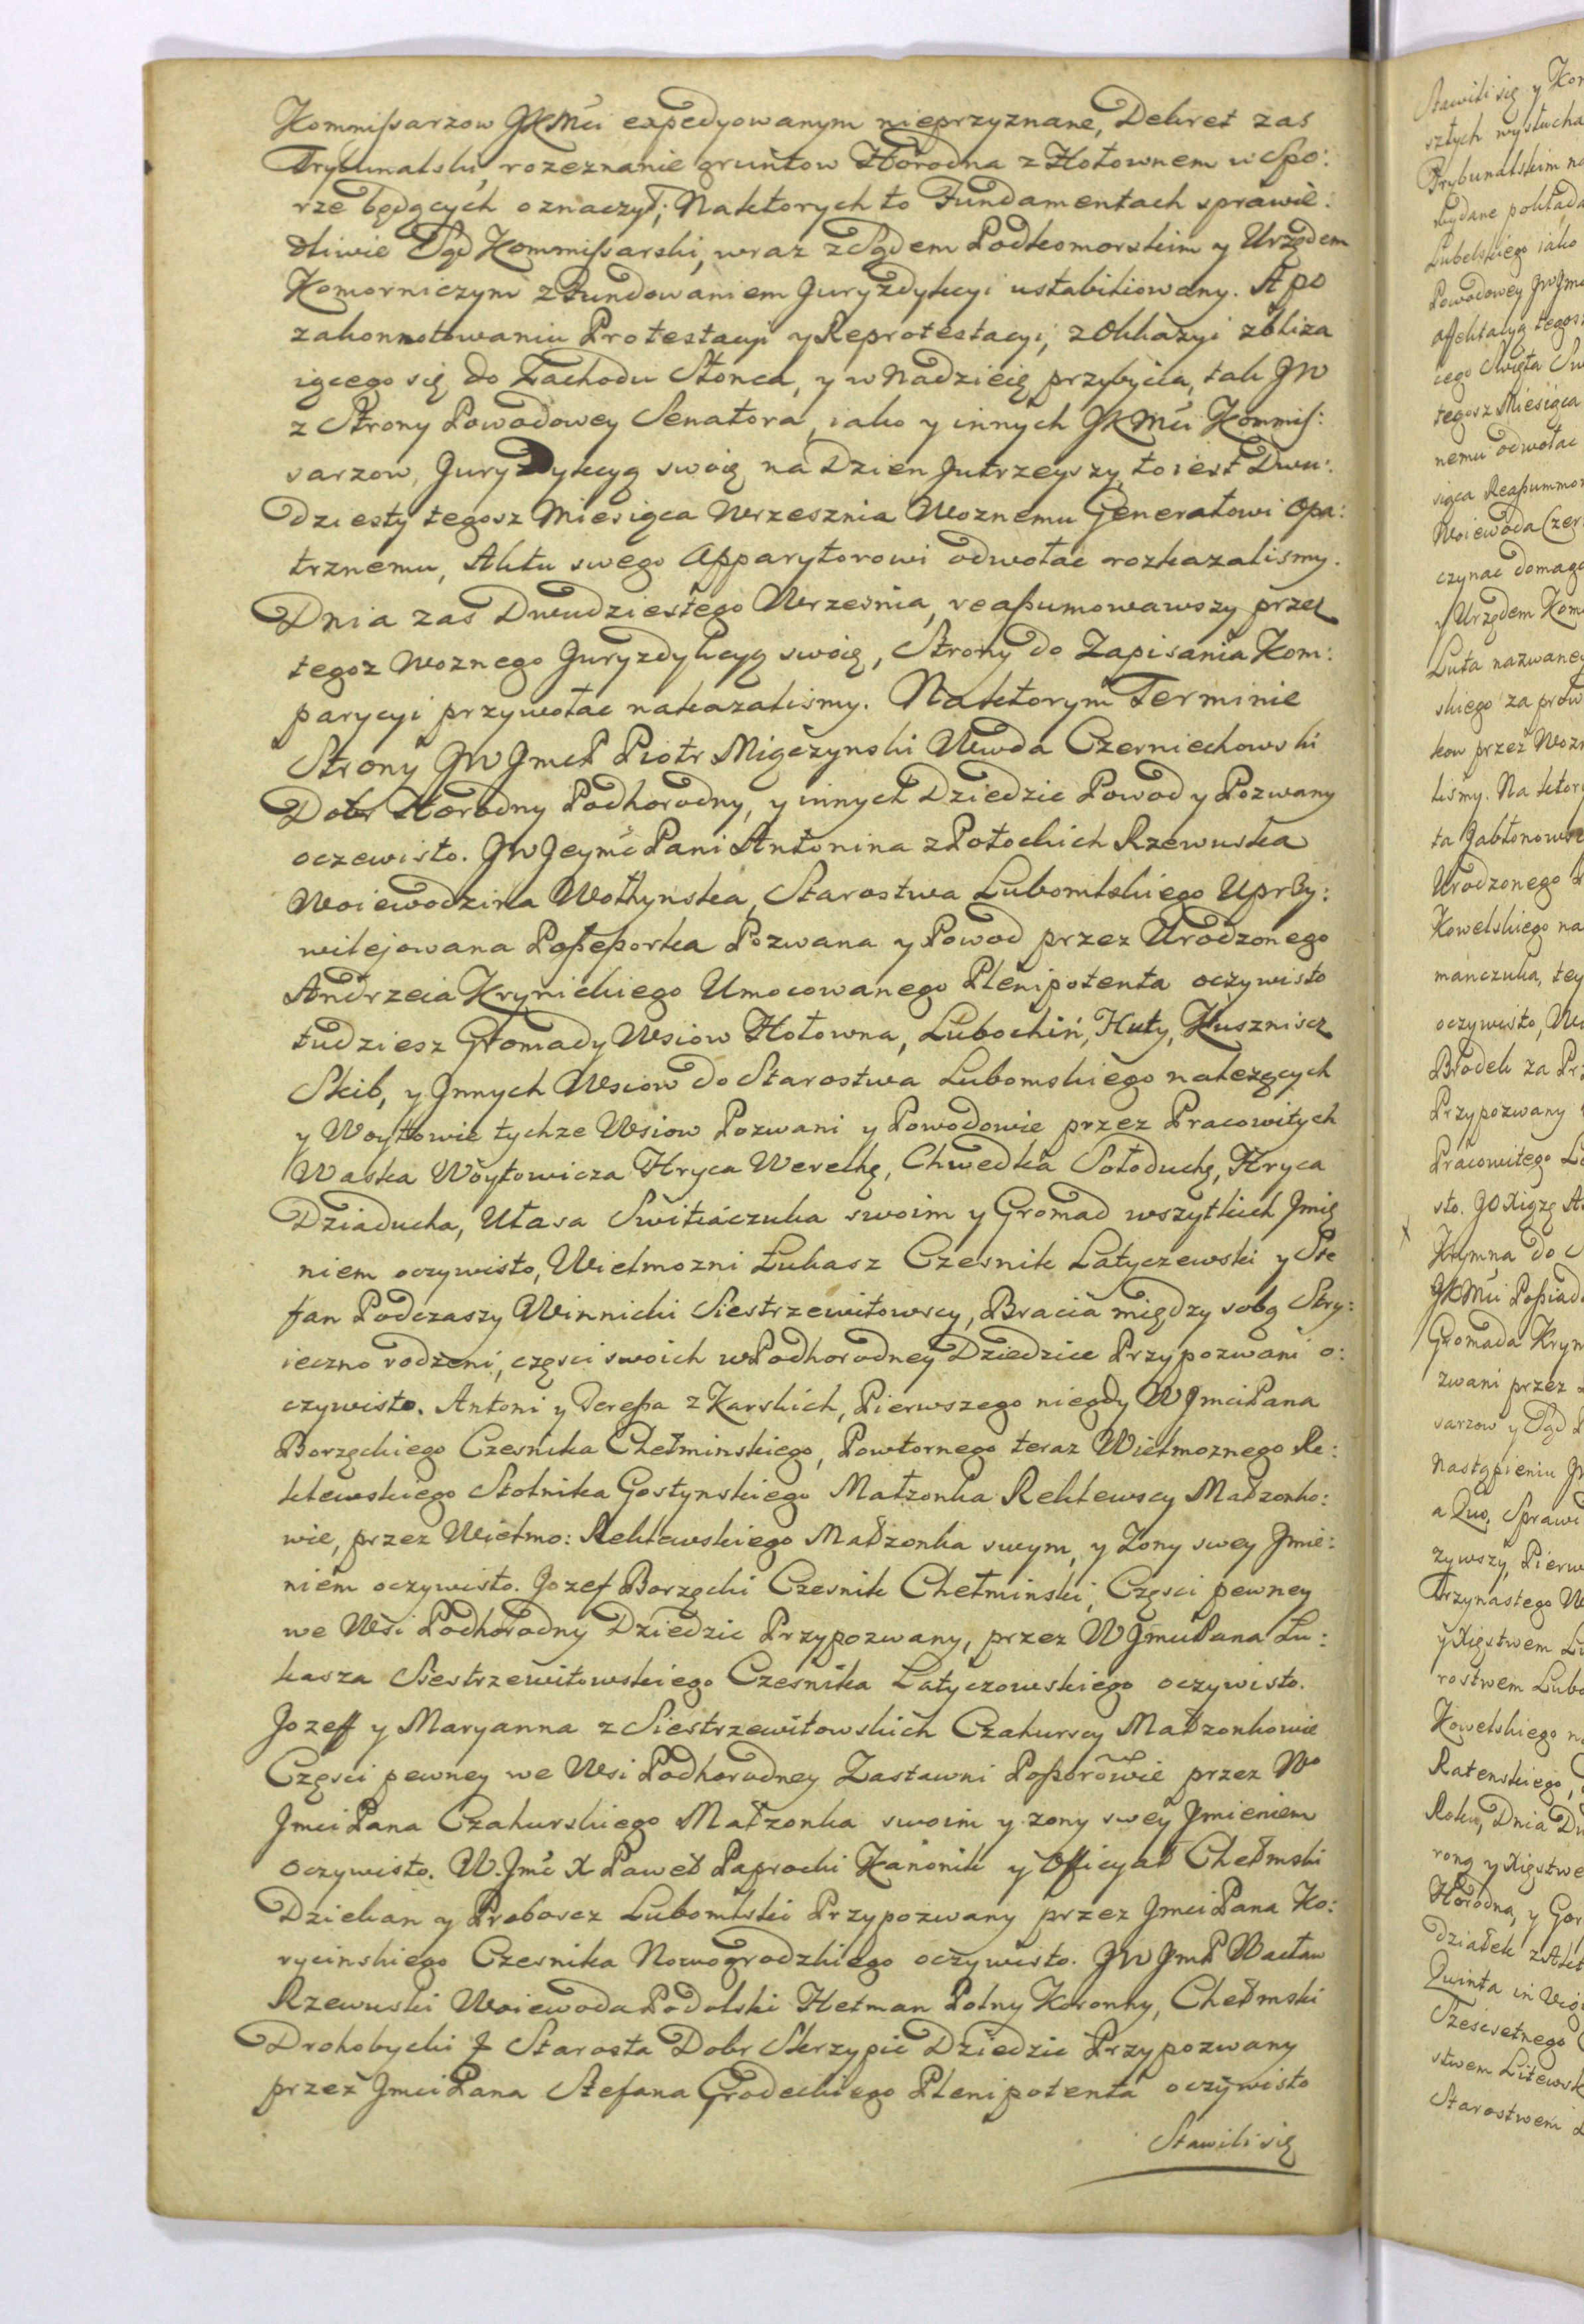 Kommissarzow JKMci expedyowanym nieprzyznane, Dekret zas
Trybunalski, rozeznanie gruntow Horodna z Hołownem w Spo:
rze będących oznaczył; Naktorych to Fundamentach sprawie:
dliwie Sąd Kommissarski, wraz z Sądem Podkomorskim y Urzędem
Komorniczym z Fundowaniem Juryzdykcyi ustabiliowany. A po
zakonnotowaniu Protestacyi y Reprotestacyi, z Okkazyi zbliza
iącego się do Zachodu Słonca, y w Nadzieię przybycia, tak JW
z Strony Powodowey Senatora, iako y innych JKMci Kommis:
sarzow, Juryzdykcyą swoię na Dzien Jutrzeyszy, to iest Dwu:
dziesty tegosz Miesiąca Wrzesznia Woznemu Generałowi Opa:
trznemu, Aktu swego Apparytorowi odwołac rozkazalismy.
Dnia zas Dwudziestego Wrzesnia, reassumowawszy przez
tegoz Woznego Juryzdykcyą swoię, Strony do Zapisania Kom:
parycyi przywołac nakazalismy. Naktorym Terminie
Strony JW JmcP Piotr Miączynski Wwda Czerniechowski
Dobr Horodny Podhorodny, y innych Dziedzic Powod y Pozwany
oczewisto. JW Jeymc Pani Antonina z Potockich Rzewuska
Woiewodzina Wołhynska, Starostwa Lubomlskiego Uprzy:
wilejowana Possessorka Pozwana y Powod przez Urodzonego
Andrzeia Krynickiego Umocowanego Plenipotenta oczywisto
tudziesz Gromady Wsiow Hołowna, Lubochiń, Huty, Kusznisz
Skib, y Jnnych Wsiow do Starostwa Lubomskiego nalezących
y Woytowie tychze Wsiow Pozwani y Powodowie przez Pracowitych
Waska Woytowicza Hryca Werechę, Chwedka Sołoduchę, Hryca
Dziaducha, Ułasa Switiaczuka swoim y Gromad wszytkich Jmię
niem oczywisto, Wielmozni Łukasz Czesnik Latyczewski y Ste
fan Podczaszy Winnicki Siestrzewitowscy, Bracia między sobą Stry:
ieczno rodzeni, częsci swoich w Podhorodney Dziedzice Przypozwani o:
czywisto. Antoni y Teressa z Karskich, Pierwszego niegdy W JmciPana
Borzęckiego Czesnika Chełminskiego, Powtornego teraz Wielmoznego Re:
klewskiego Stolnika Gostynskiego Małzonka Reklewscy Małzonko:
wie, przez Wielmo: Reklewskiego Małzonka swym, y Zony swey Jmie:
niem oczywisto. Jozef Borzęcki Czesnik Chełminski, Częsci pewney
we Wsi Podhorodny Dziedzic Przypozwany, przez W JmciPana Łu:
kasza Siestrzewitowskiego Czesnika Latyczowskiego oczywisto.
Jozeff y Maryanna z Siestrzewitowskich Czahurscy Małzonkowie
Częsci pewney we Wsi Podhorodney Zastawni Possorowie przez Wo
JmciPana Czahurskiego Małzonka swoim y zony swey Jmieniem
oczywisto. W. Jmc X Paweł Paprocki Kanonik y Officyał Chełmski
Dziekan y Proboscz Lubomlski Przypozwany przez JmciPana Ko:
rycinskiego Czesnika Nowogrodzkiego oczywisto. JW JmP Wacław
Rzewuski Woiewoda Podolski Hetman Polny Koronny, Chełmski
Drohobycki Starosta Dobr Skrzypic Dziedzic Przypozwany
przez JmciPana Stefana Grodeckiego Plenipotenta oczywisto
Stawili się